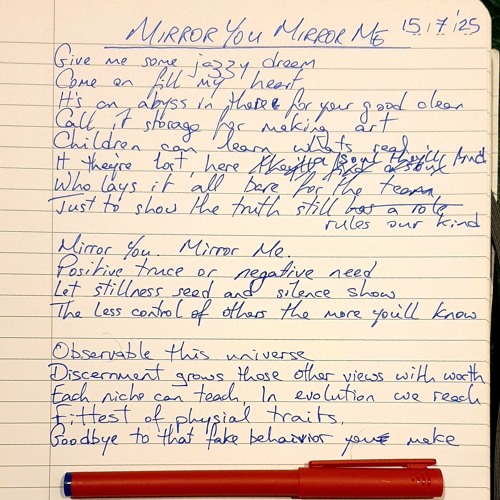 MIRROR YOU MIRROR ME 15/7/'25
Give me some jazzy dream
Come on fill my heart
It's an abyss in there for your good clean
Call it storage for making art
Children can learn whats real
If they're lost, here a soul they'll find
Who lays it all bare for the team
Just to show the truth still has a role
rules our kind
Mirror You. Mirror Me.
Positive truce or negative need
Let stillness seed and silence show
The less control of others the more you'll know
Observable this universe
Discernment grows those other views with worth
Each niche can teach, In evolution we reach
Fittest of physial traits,
Goodbye to that fake behaivior you make